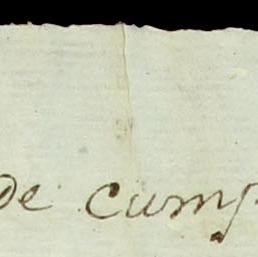 de cump